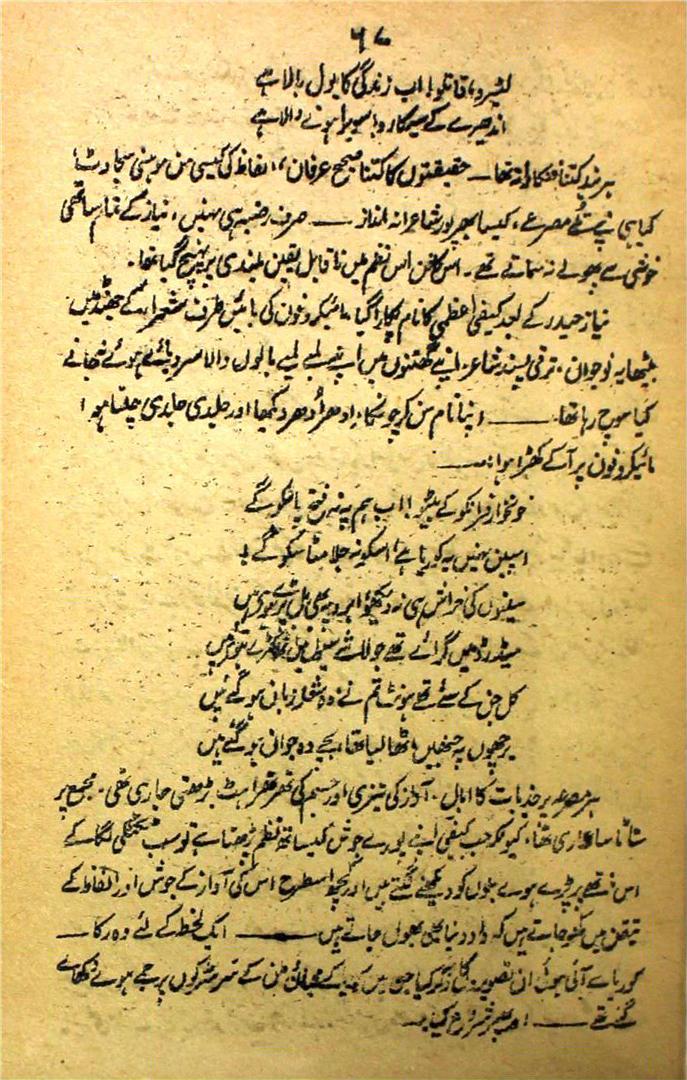 ۶۷
لٹیرو، قاتلو! اب زندگی کا بول بالا ہے
اندھیرے کے سیہکارو! سویرا ہونے والا ہے
ہر بند کتنا فنکارانہ تھا — حقیقتوں کا کتنا صحیح عرفان، الفاظ کی کیسی من موہنی سجاوٹ،
کیا ہی نپے تلے مصرعے، کیسا بھرپور شاعرانہ انداز — صرف رضیہ ہی نہیں، نیاز کے تمام ساتھی
خوشی سے پھولے نہ سماتے تھے۔ اس کا فن اس نظم میں ناقابل یقین بلندی پر پہنچ گیا تھا۔
نیاز حیدر کے بعد کیفی اعظمی کا نام پکارا گیا۔ مائیکروفون کی بائیں طرف شعراء کے جھنڈ میں
بیٹھا یہ نوجوان، ترقی پسند شاعر، اپنے گھٹنوں میں اپنے لمبے لمبے بالوں والا سر دبائے ہوئے نجانے
کیا سوچ رہا تھا — اپنا نام سن کر چونکا، ادھر اُدھر دیکھا اور جلدی جلدی چلتا ہوا
مائیکروفون پر آ کے کھڑا ہوا :—
خونخوار فرانکو کے بیٹو! اب ہم پہ نہ فتح پا سکو گے
اسپین نہیں یہ کوریا ہے، اسکو نہ جلا مٹا سکو گے!
سینوں کی خراش ہی نہ دیکھو ابرو پہ بھی بل پڑے ہوئے ہیں
میڈرڈ میں گرائے تھے جو لاشے سیول میں اٹھ کھڑے ہوئے ہیں
کل جن کے سئے تھے ہونٹ تم نے وہ شعلہ زبان ہو گئے ہیں
برچھوں پہ جنھیں اٹھا لیا تھا، بچے وہ جوان ہو گئے ہیں
ہر مصرعہ پر جذبات کا ابال، آواز کی تیزی اور جسم کی تھرتھراہٹ بڑھتی جا رہی تھی۔ مجمع پر
سناٹا سا طاری تھا، کیونکہ جب کیفی اپنے پورے جوش کیساتھ نظم پڑھتا ہے تو سب ٹکٹکی لگا کے
اس کے ہلتے ہوئے بلوں کو دیکھنے لگتے ہیں اور کچھ اسطرح اس کی آواز کے جوش اور الفاظ کے
تیقن میں کھو جاتے ہیں کہ داد دینا بھی بھول جاتے ہیں — ایک لحظہ کے لئے وہ رکا —
کوریا سے آئی ہوئی ان تصویروں جن میں کے سر سڑکوں پر جمے ہوئے دکھائے
گئے تھے — اور پھر شروع کیا :—